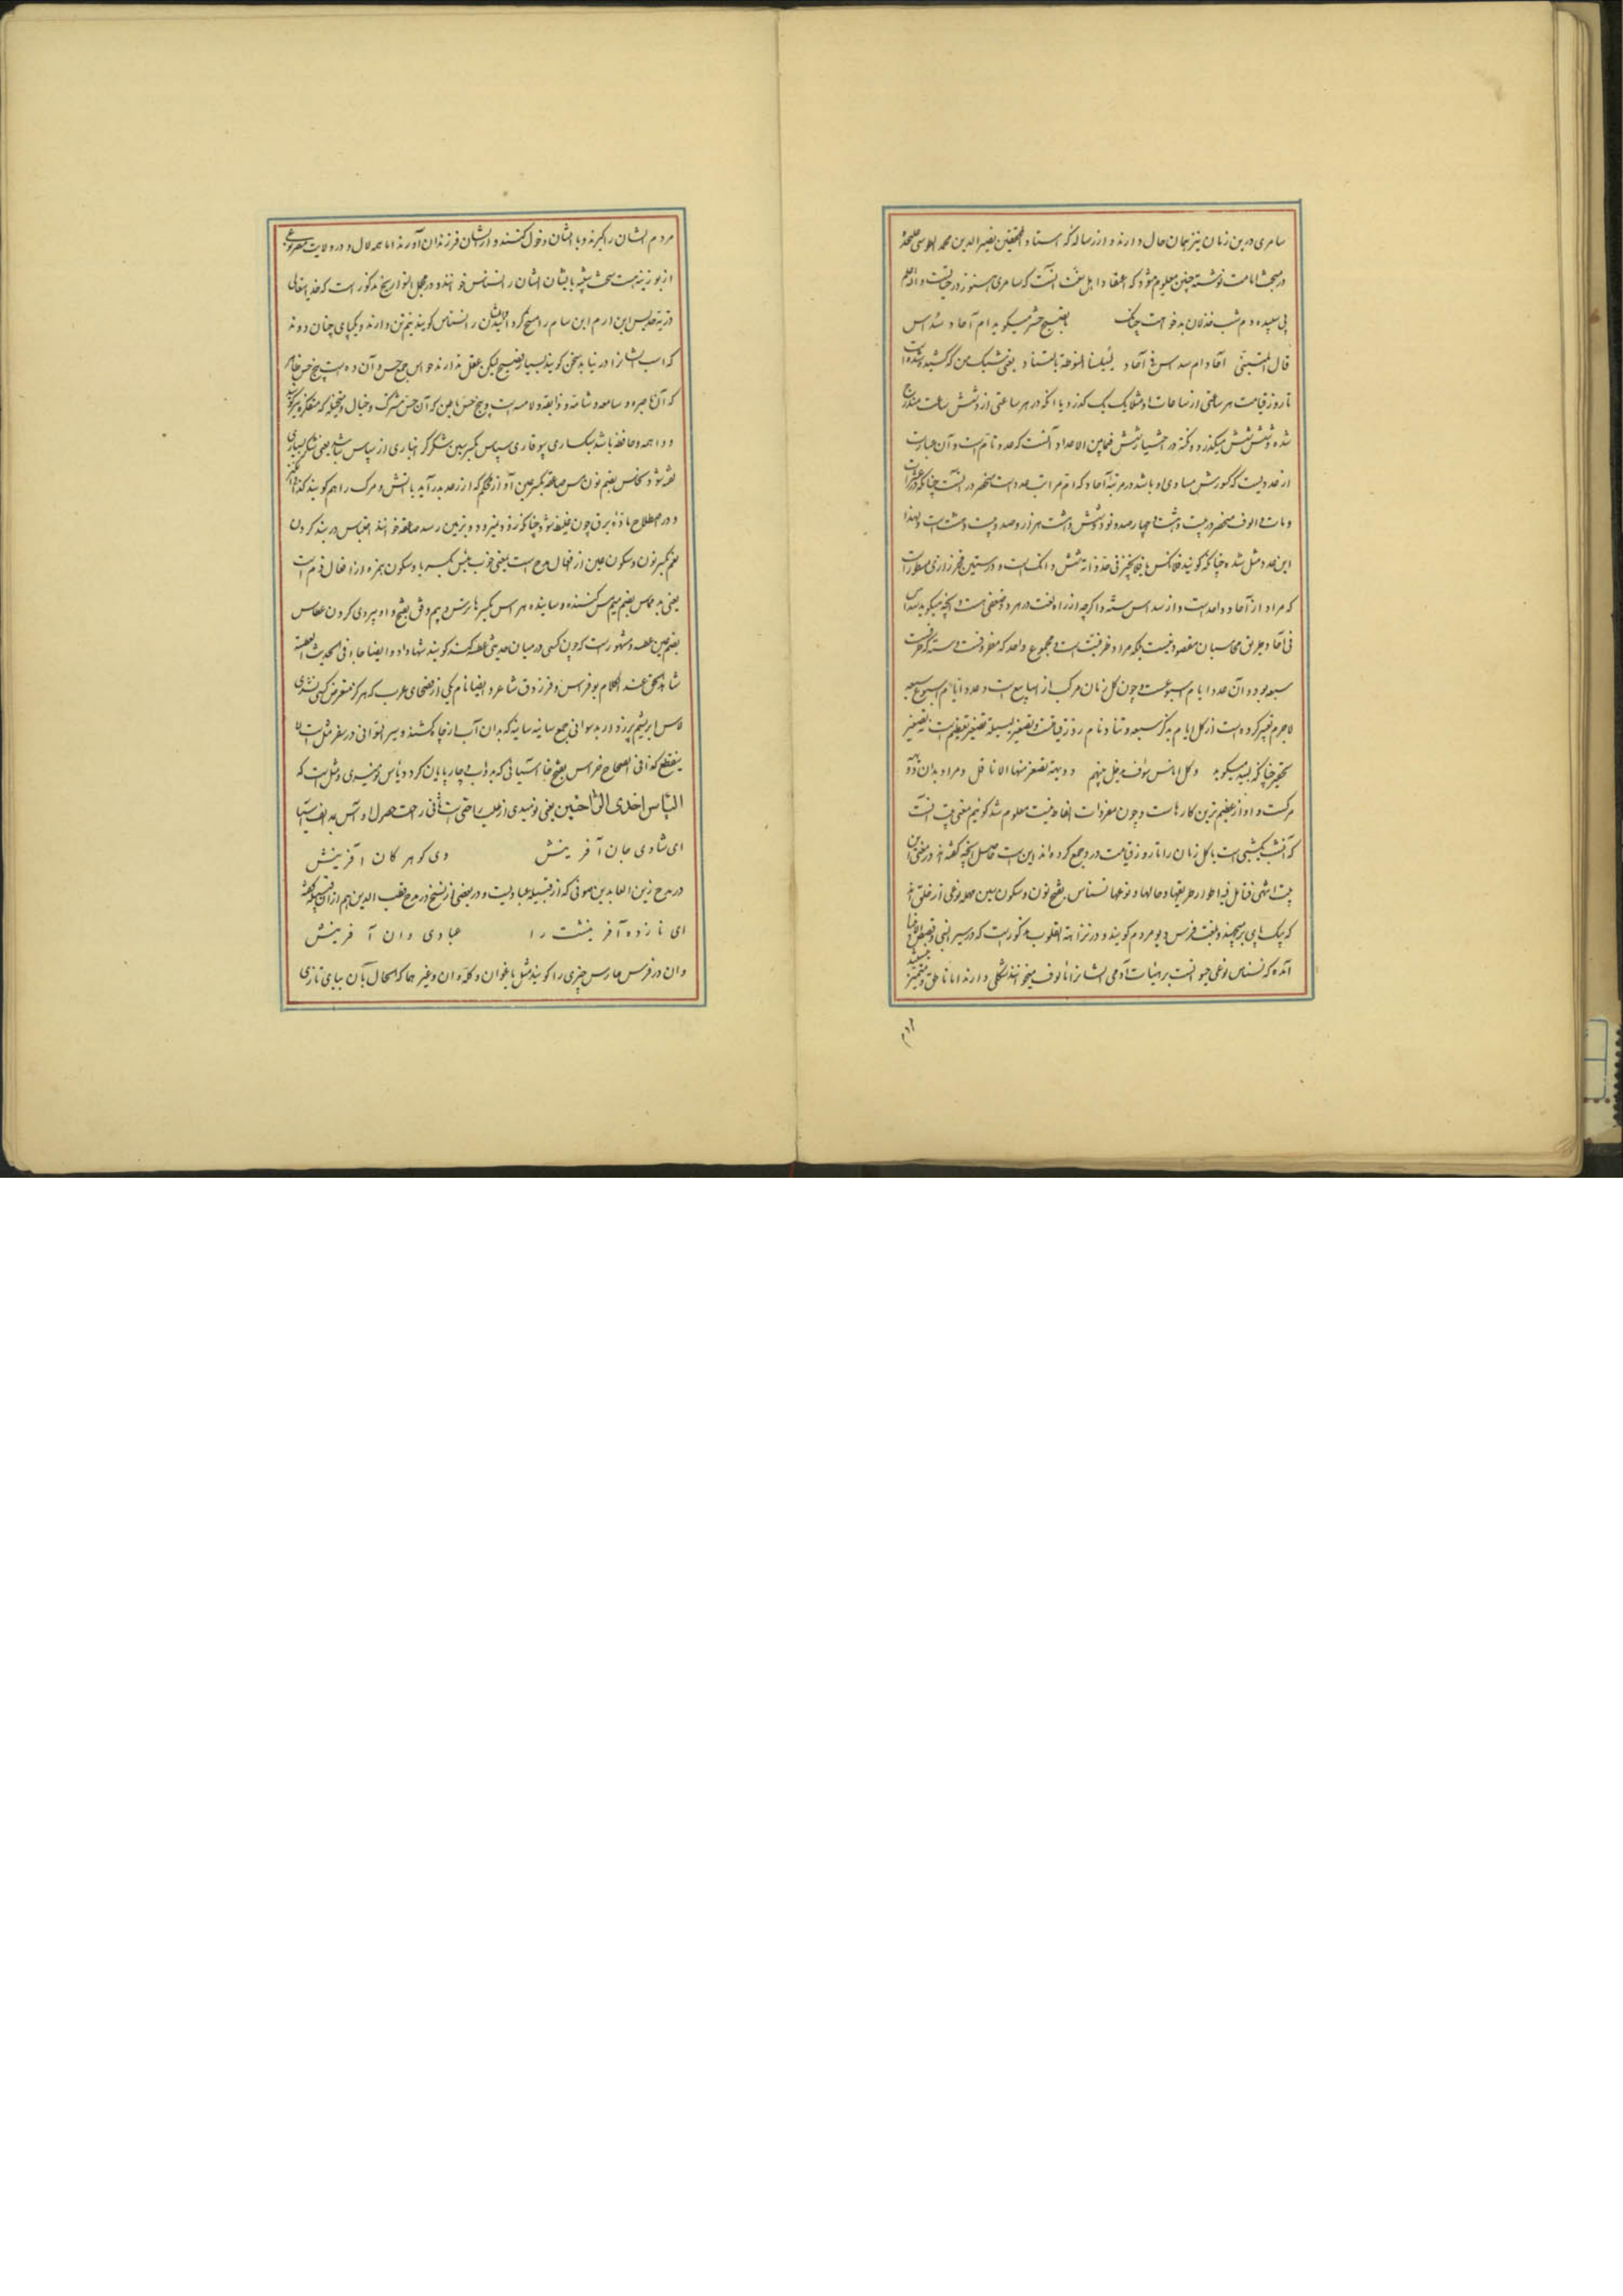 سامری درین زمان نیز بهان حال دارند و از رساله که استاد المحققین نصیر الدین محمد الطوسی علیه
در مبحث امامت نوشته چنین معلوم میشود که اعتقاد اهل سنت آنست که سامری هنوز در حیاتست و الله اعلم
پی سپیده دم شب خذلان بدخواهت چنانک بصبح حشر میگوید ام آحاد سداس
قال المتنبی آحاد ام سداس فی آحاد لییلتنا المنوطة بالتناد یعنی شبک من که کشیده شده است
تا روز قیامت هر ساعتی از ساعات او مثلا یک یک گذرد یا آنکه در هر ساعتی از و شش ساعت مندرج
شده و شش شش میگذرد و نکته در اختیار شش فیما بین الاعداد آنست که عدد تام است و آن عبارت
از عددیست که کسورش مساوی او باشد در مرتبه آحاد که اتم مراتب عدد است منحصر در آنست چنانکه در عشرات
و مات و الوف منحصر در بیست و هشت و چهارصد و نود و شش و هشت هزار و صد و بیست و هشت است و لهذا
این عدد مثل شده چنانکه گویند فلان کس یا فلان چیز فی حد ذاته شش دانگ است و در ستین فخر رازی مسطورات
که مراد از آحاد واحد است و از سداس سته و اگرچه از راه لغت در هر دو ضعفی هست و آنچه میگوید سداس
فی آحاد بطریق محاسبان مقصود نیست بلکه مراد ظرفیتست و مجموع واحد که مظروفست و سته که ظرفست
سبعه بود و آن عدد ایام اسبوعست و چون کل زمان مرکب از اسابیع است و عدد ایام اسبوع سبعه
لاجرم تعبیر کرده است از کل ایام بذکر سبعه و تناد نام روز قیامت و تصغیر لییله تصغیر تعظیم است نه تصغیر
تحقیر چنانکه لبید میگوید و کل اناس سوف یدخل بینهم دویهیة تصفر منها الانامل و مراد بدان دویهیه
مرگست و او از عظیم ترین کارهاست و چون مفردات الفاظ بیت معلوم شد گوئیم معنی بیت آنست
که آنشب یکشبی است یا کل زمان را تا روز قیامت در و جمع کرده اند این است حاصل آنچه گفته اند در معنی این
بیت انتهی فتامل فیه اطوار طریقها و حالها و نوعها نسناس بفتح نون و سکون سین مهمله نوعی از خلق اند
که بیک پای برمیجهند و بلغت فرس دیو مردم گویند و در نزهة القلوب مذکور است که در سیر النبی و قصص الانبیا
آمده که نسناس نوعی حیوانست بر هیات آدمی ایشانرا مالوف میخوانند شکلی دارند اما ناطق و متمیز نیستند
مردم
مردم ایشان را گیرند و با ایشان دخول کنند و از ایشان فرزندان آورند اما همه لال و در ولایت مصر نوعی
از بوزینه هست سخت شبیه بایشان ایشان را نسناس خوانند و در مجمل التواریخ مذکور است که خدایتعالی
ذریه جدیس ابن ارم ابن سام را مسخ کرد و ایشان را نسناس گویند نیم تن دارند و یکپای چنان دوند
که اسب ایشانرا در نیابد سخن گویند بسیار فصیح لیکن عقل ندارند حواس جمع حس و آن ده است پنج حس ظاهر
که آن باصره و سامعه و شامه و ذایقه و لامسه است و پنج حس باطن که آن حس مشترک و خیال و متخیله که متفکره نیز گویند
و واهمه و حافظه باشد سبکساری بیوقاری سپاس بکسر سین شکر کرانباری از سپاس شب یعنی شکر بسیاری
گفته شود نحاس بضم نون مس صاعقه بکسر عین آواز محکم که از رعد بدر آید با آتش و مرگ را هم گویند
و در اصطلاح ماده برق چون غلیظ شود چنانکه زود نمیرد و بزمین رسد صاعقه خوانند احتباس در بند کردن
نعم بکسر نون و سکون عین از افعال مدح است یعنی خوب بئس بکسر با و سکون همزه از افعال ذم است
یعنی بد مماس بضم میم مس کننده و ساینده هراس بکسر ها ترس و بیم وفق بفتح واو پیروی کردن عطاس
بضم عین عطسه و مشهور است که چون کسی در میان حدیثی عطسه کند گویند شهادت داد و ایضا جاء فی الحدیث العطسة
شاهد الحق عند الکلام بوفراس و فرزدق شاعر و ایضا نام یکی از فصحای عرب که هرگز متعرض کسی نشدی
لاس ابریشم پرزدار بد سوانی جمع سانیه سانیه که بدان آب از چاه کشند و سیر السوانی در سفر مثل است لا
ینقطع کذا فی الصحاح خراس بفتح خا آسیائی که بدواب و چارپایان گردد یاس نومیدی و مثل است که
الیاس احدی الراحتین یعنی نومیدی از طلب راحتی است ثانی راحت حصول او آس بمد الف آسیا
ای شادی جان آفرینش وی گوهر کان آفرینش
در مدح زین العابدین صوفی که از قبیله عبادیست و در بعضی از نسخ در مدح قطب الدین هم از آن قبیله گفته
ای نازده آفرینشت را عبادی وان آفرینش
وان در فرس حارس چیزی را گویند مثل باغوان و گله وان و غیرهما که الحال بآن ببای تازی